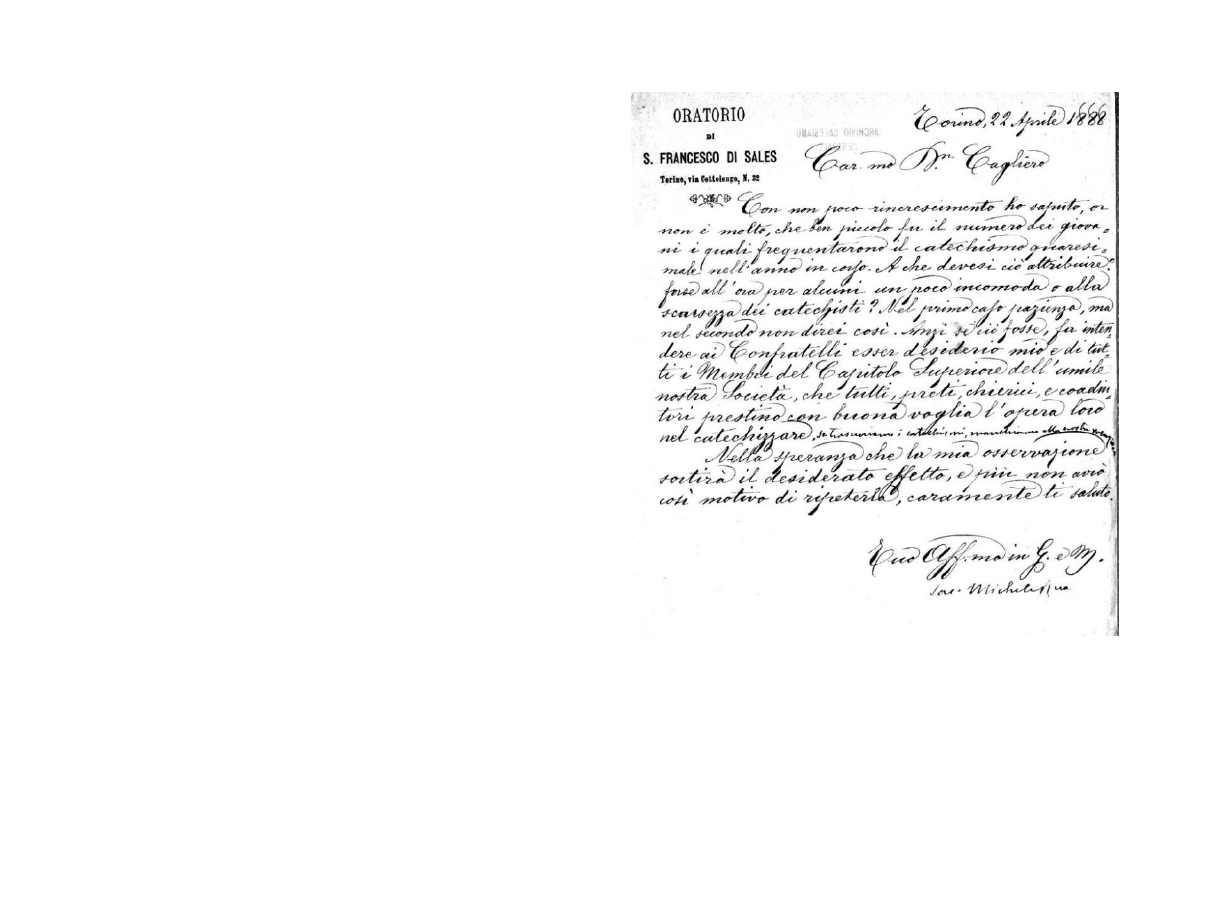 ORATORIO
DI
S. FRANCESCO DI SALES
Torino, via Cottolengo, N. 32
Torino, 22 Aprile 1888
Car.mo D.n Cagliero
Con non poco rincrescimento ho saputo, or
non è molto, che ben piccolo fu il numero dei giova-
ni i quali frequentarono il catechismo quaresi-
male nell'anno in corso. A che devesi ciò attribuire?
forse all'ora per alcuni un poco incomoda o alla
scarsezza dei catechisti? Nel primo caso pazienza, ma
nel secondo non direi così. Anzi se ciò fosse, fa inten-
dere ai Confratelli esser desiderio mio e di tut-
ti i Membri del Capitolo Superiore dell'umile
nostra Società, che tutti, preti, chierici, e coadiu-
tori prestino con buona voglia l'opera loro
nel catechizzare, se trascuriamo i catechismi, manchiamo alla nostra
Nella speranza che la mia osservazione
sortirà il desiderato effetto, e più non avrò
così motivo di ripeterla, caramente ti saluto.
Tuo Aff.mo in G. e M.
Sac. Michele Rua